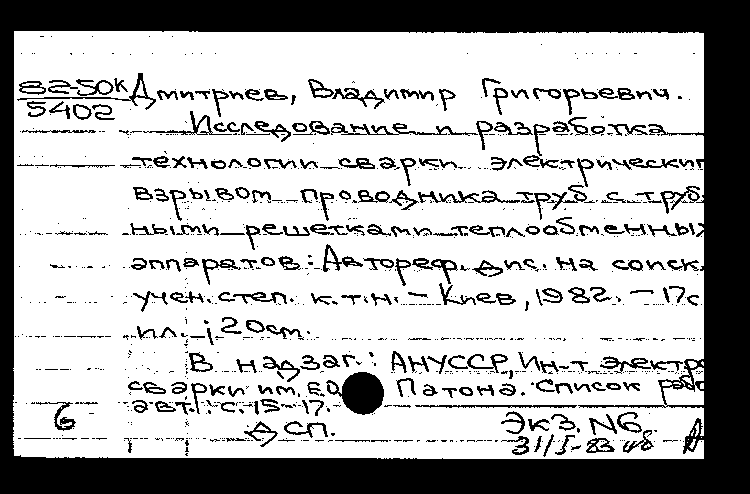 82-50к Дмитриев, Владимир Григорьевич.
5402
Исследование и разработка
технологии сварки электрическим
взрывом проводника труб с труб-
ными решетками теплообменных
аппаратов: Автореф. дис. на соиск.
учен. степ. к.т.н. – Киев, 1982. – 17с
ил. ; 20см.
В надзаг.: АНУССР, Ин-т электро
сварки им. Е.О. Патона. Список рабо
авт.: с. 15-17.
6 ДСП. Экз. N6
31/I-83